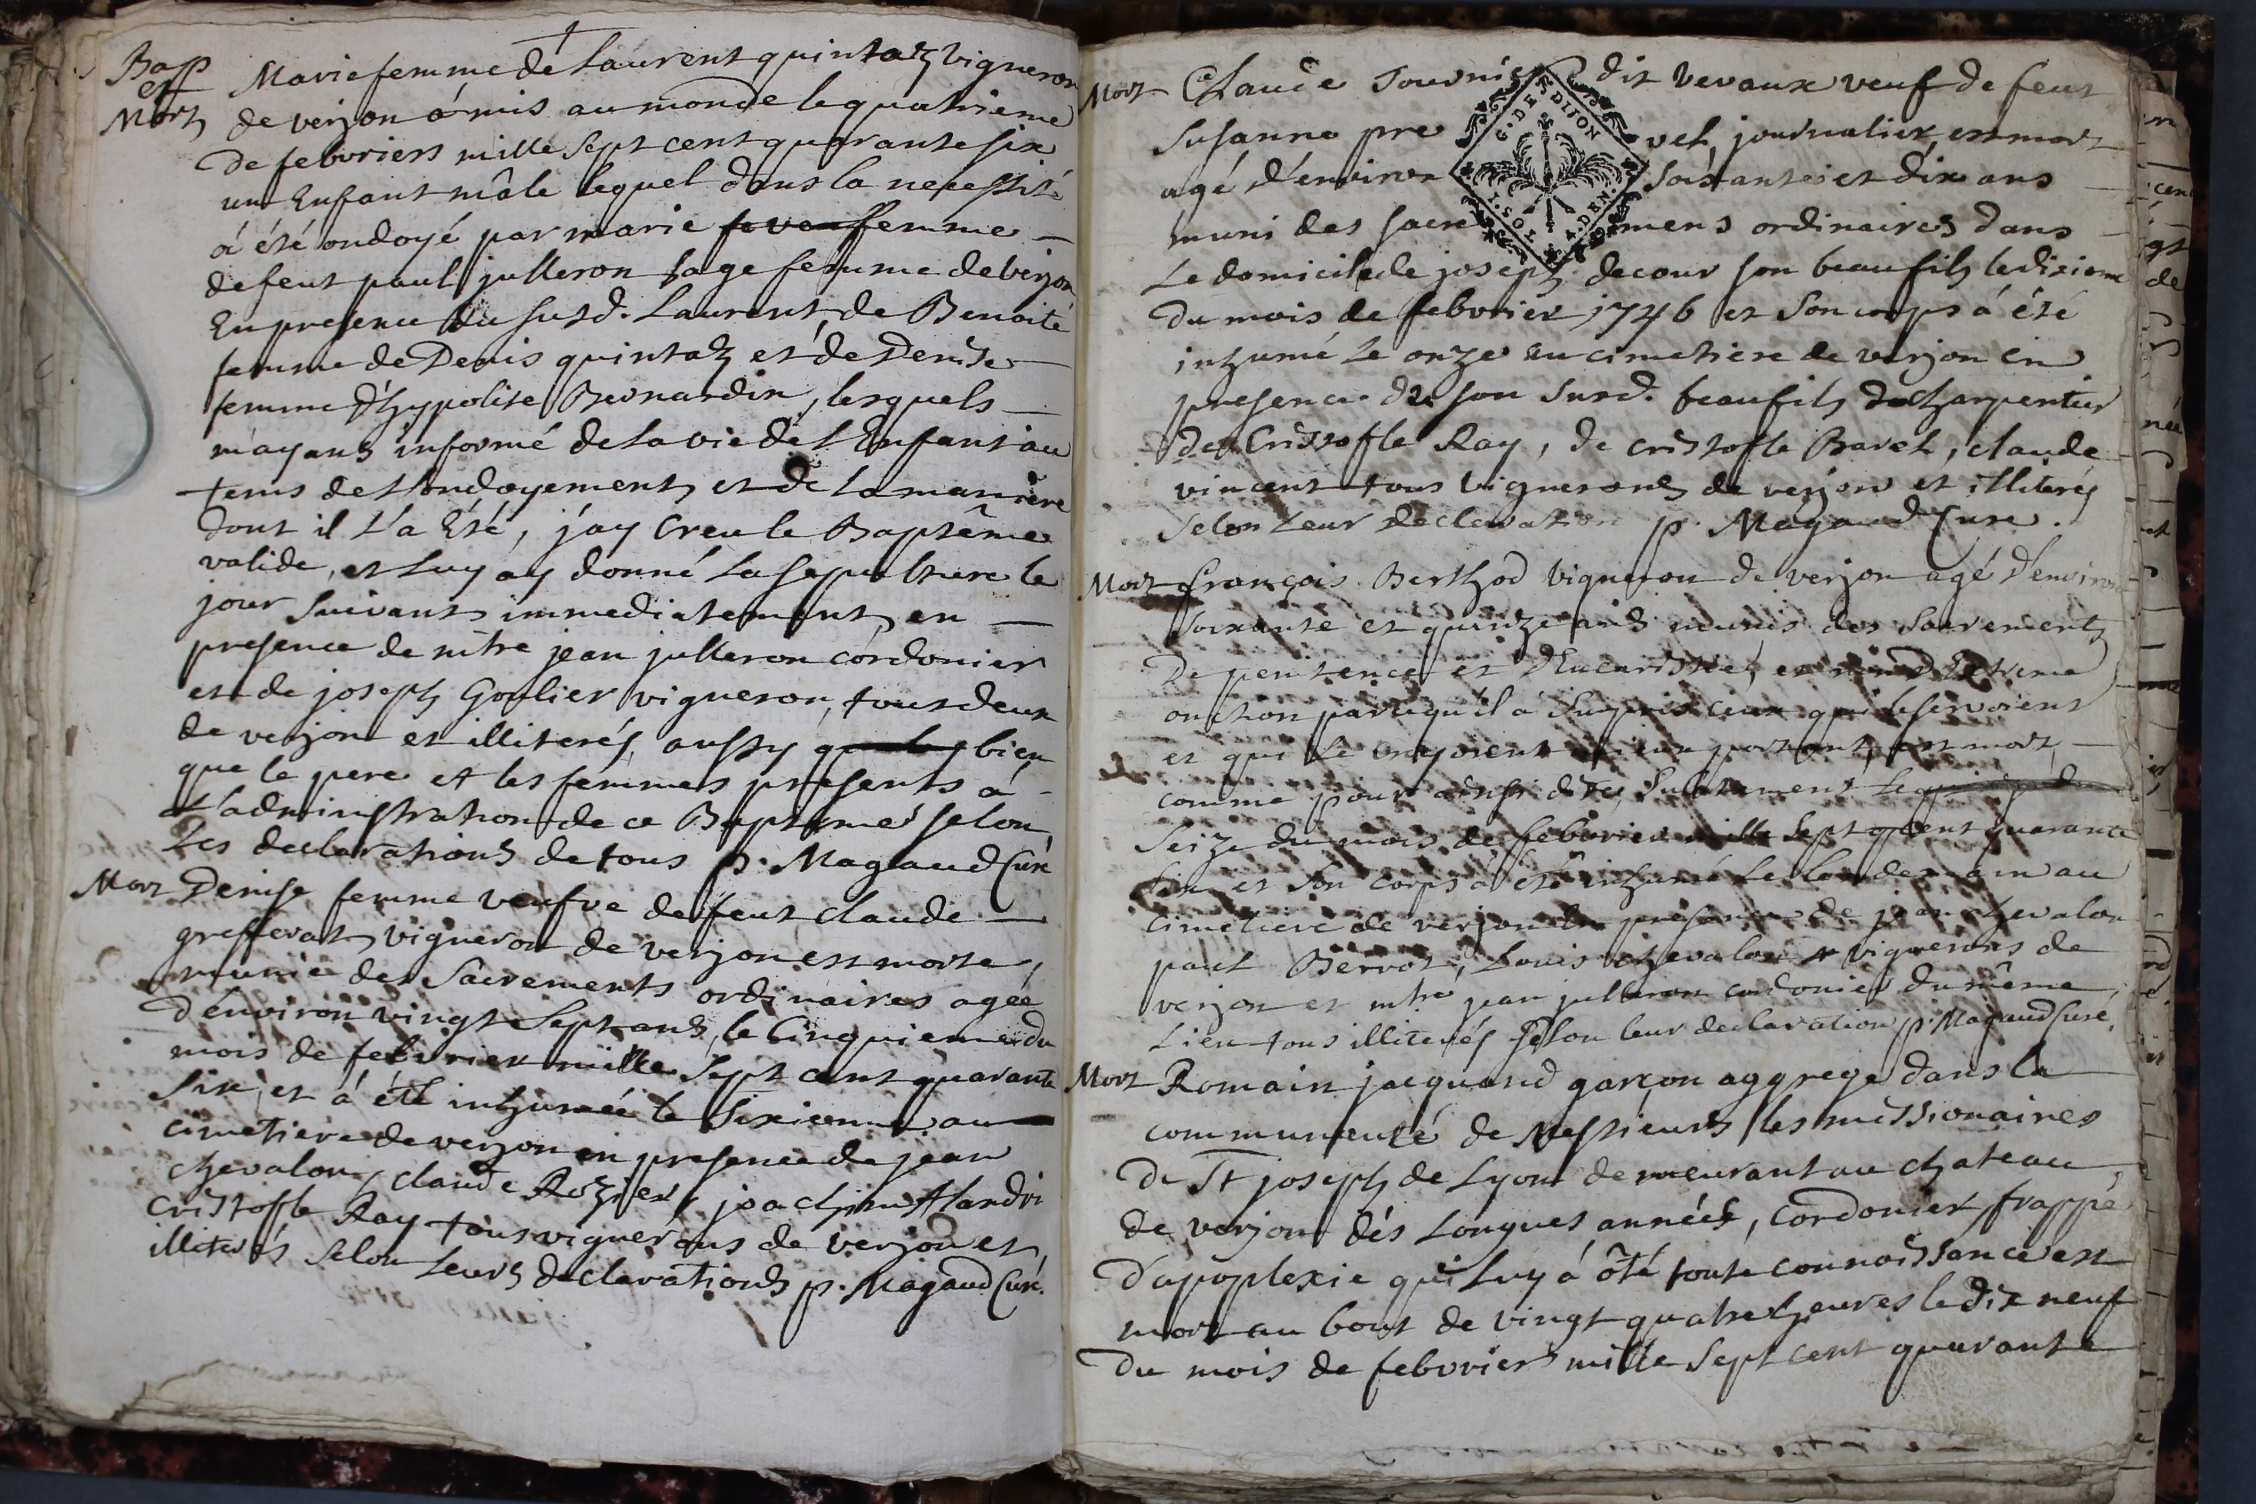 Bap
et
Mort
Marie femme de Laurent quintaz vigneron
de verjon á mis au monde le quatrieme
de febvriers mille sept cent quarante six
un Enfant mâle lequel dans la necessité
á été ondoyé par marie femme
de feut paul julleron sage femme de verjon
En presence du susd. Laurent, de Benoite
femme de Denis quintaz et de Denise
femme d'hypolite Bernardin, lesquels
m'ayans informé de la vie de l'Enfant au
tems de l'ondoyement et de la maniere
dont il l'a Eté, j'ay Creu le Baptême
valide, et luy ay donné la sepulture le
jour suivant immediatement en
presence de mtre jean julleron cordonier
et de joseph Goulier vigneron, tout deux
de verjon et illiterés, aussy bien
que le pere et les femmes presents á
l'administration de ce Baptême selon
les declarations de tous p. Magaud Curé
Mort Denise femme veufve de feut claude
grefferat vigneron de verjon est morte,
munie des Sacrements ordinaires agée
d'environ vingt Sept ans, le Cinquieme du
mois de febvrier mille Sept cent quarante
Six, et á été inhumée le Sixieme au
cimetiere de verjon en presence de jean
chevalon, claude Rozier, joachim Alandri
Cristofle Ray tous vignerons de verjon et
illiterés selon leurs declarations p. Magaud Curé.
Mort Claude Tournier dit Vevaux veuf de feut
Susanne pre vel, journalier est mort
agé d'environ soisante et dix ans
muni des sacre mens ordinaires dans
Le domicile de joseph decour son beaufils le dixieme
du mois de febvrier 1746 et son corps á été
inhumé le onze au cimetiere de verjon en
presence de son susd. beaufils charpentier
de Cristofle Ray, de cristofle Bavel, claude
vincent tous vignerons de verjon et illiterés
selon leur declaration p. Magaud Curé.
Mort françois Berthod vigneron de verjon agé d'environ
soixante et quinze ans munis des Sacrements
De penitence et d'Eucaristie, et non d'Extreme
onction parcequ'il á surpris ceux qui le servoient
et qui le croyoient mieux portant, est mort,
comme pour ainsi dire, subitement le
seize du mois de febvrier mille sept cent quarante
six et son corps á été inhumé le lendemain au
Cimetiere de verjon en presence de jean chevalon
paul Bervot, Louis chevalon vignerons de
verjon et mtre jean julleron cordonier du même
Lieu tous illiterés selon leur declaration p. Magaud Curé.
Mort Romain jacquand garçon aggregé dans la
communeuté de Messieurs les missionaires
de St joseph de Lyon demeurant au chateau
de verjon dés longues années, Cordonier, frappé
d'apoplexie qui luy á ôté toute connoissance est
mort au bout de vingt quatre heures le dix neuf
du mois de febvriers mille sept cent quarante
G. DE DIJON
I. SOL 4. DEN.